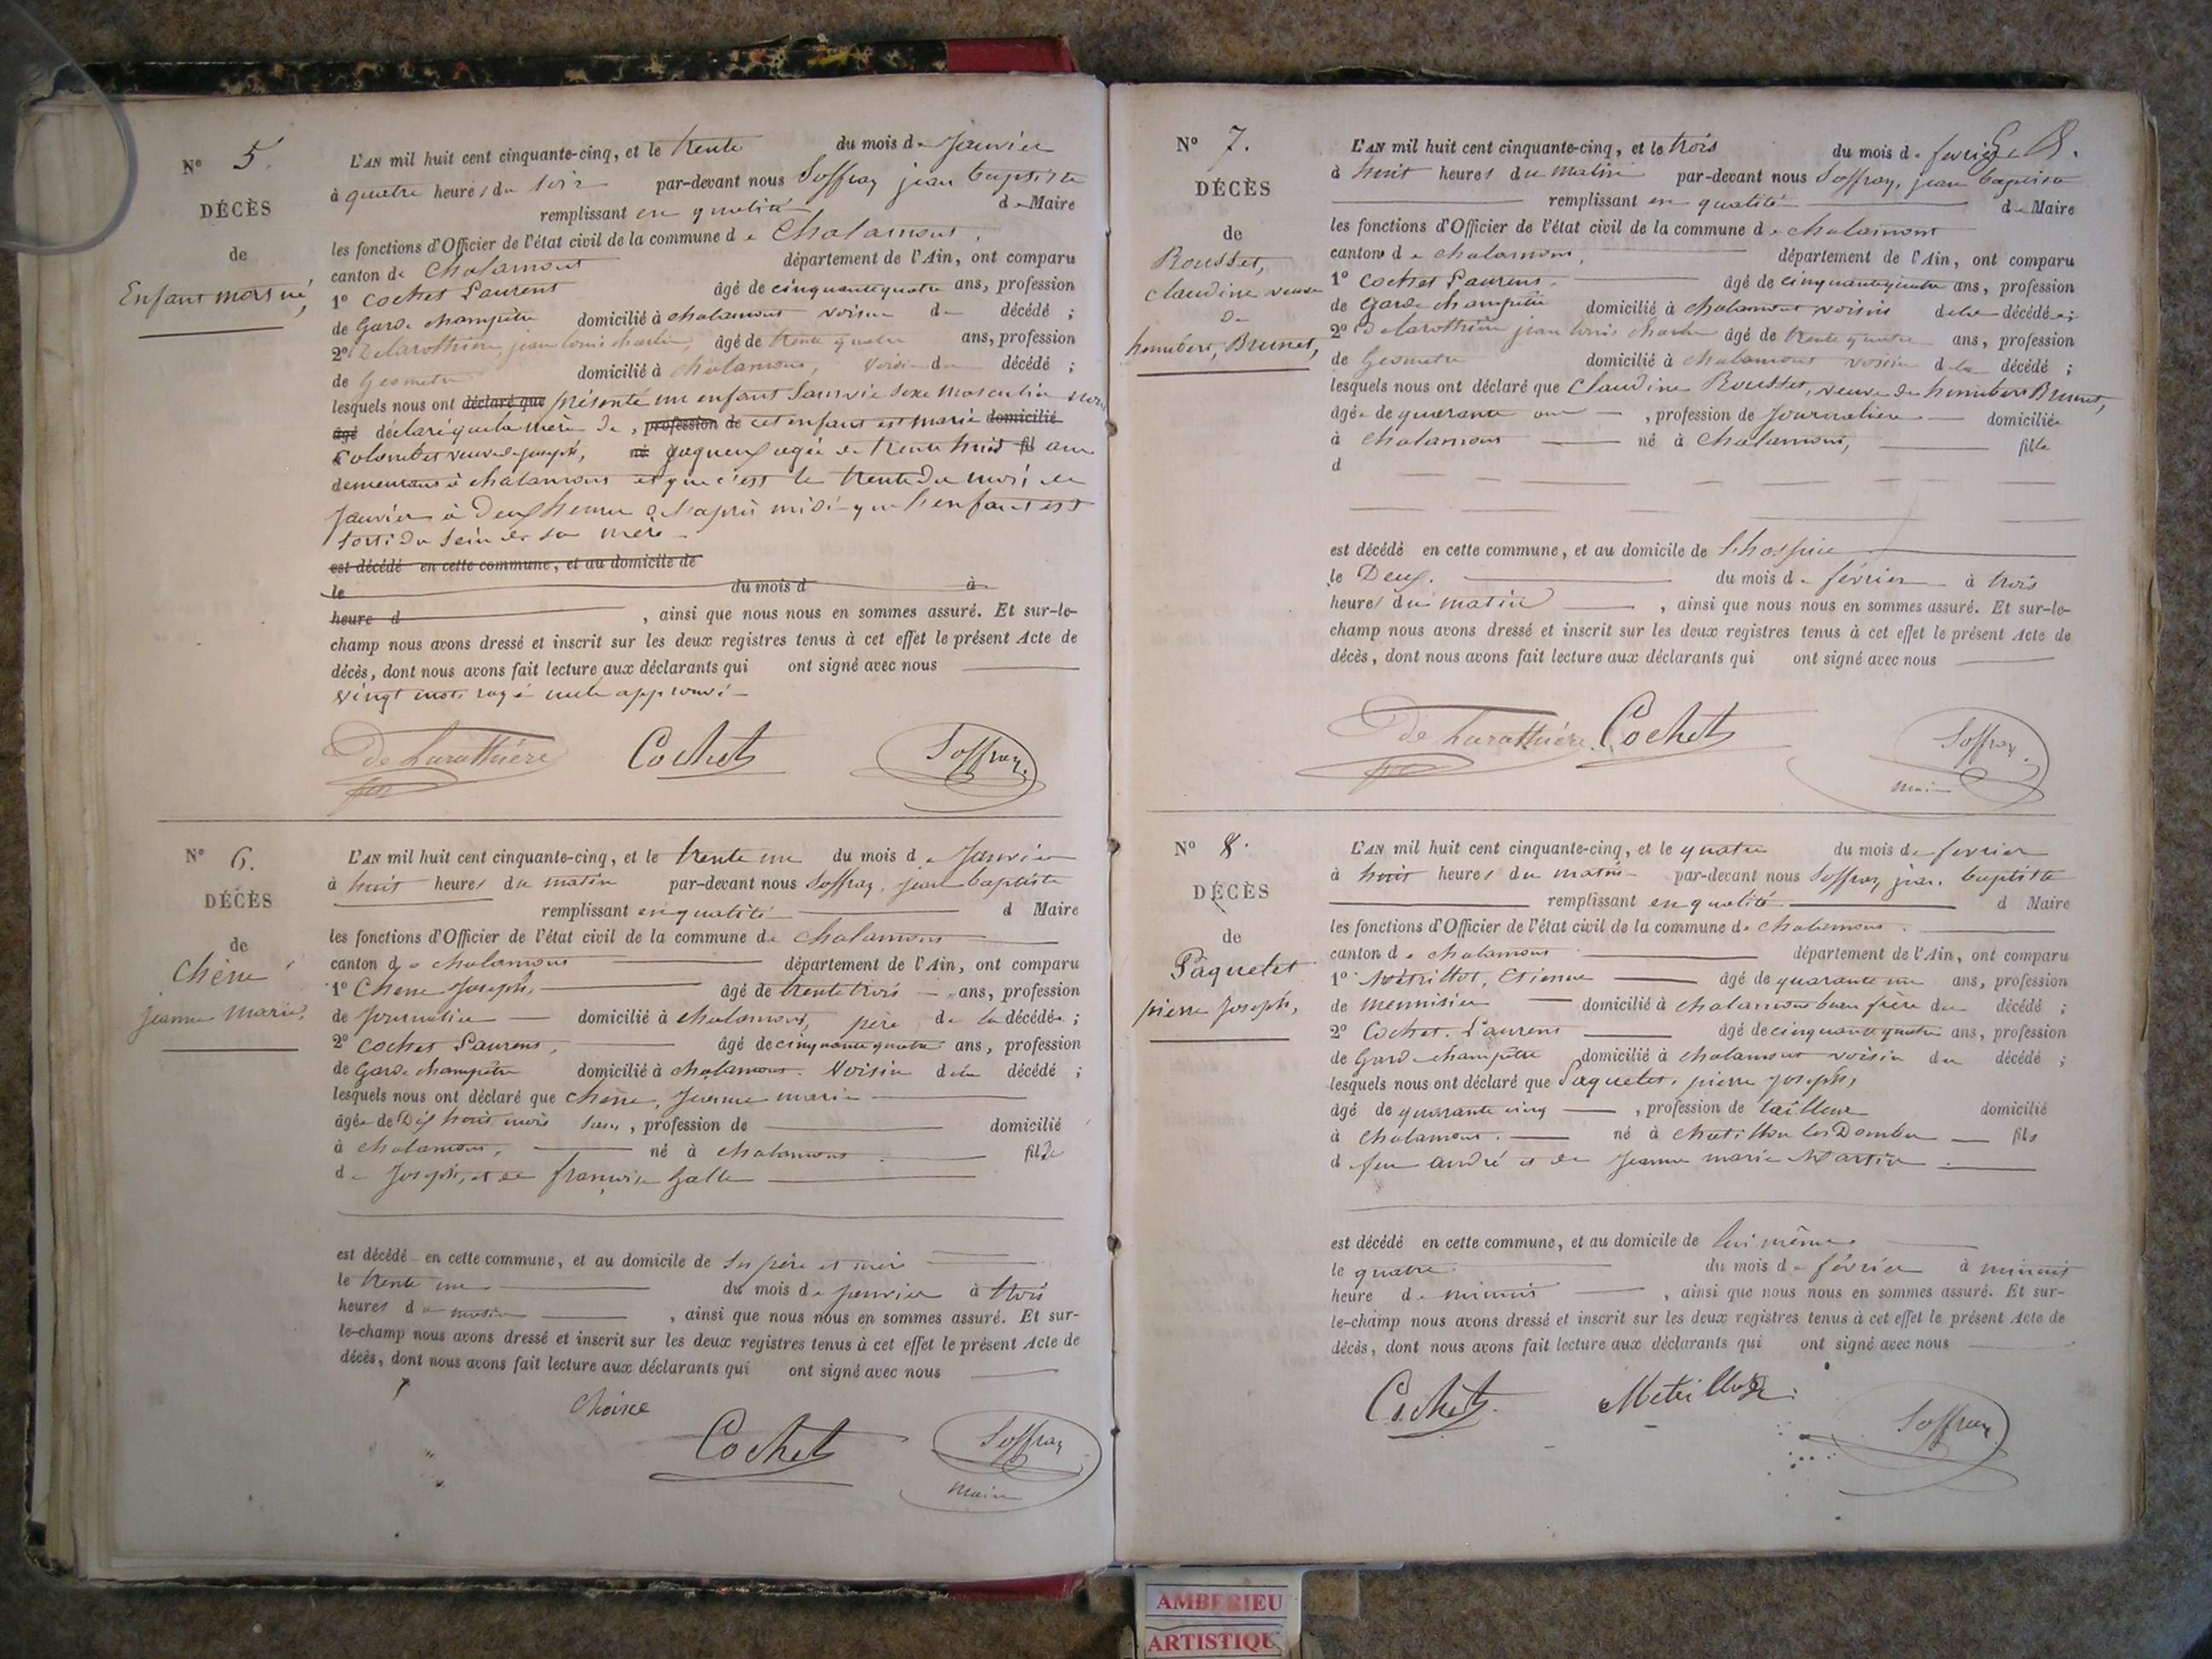 N° 5.
DÉCÈS
de
Enfant mort né,
L'AN mil huit cent cinquante-cinq, et le trente du mois de Janvier
à quatre heures du soir par-devant nous Soffray jean baptiste
remplissant en qualité de Maire
les fonctions d'Officier de l'état civil de la commune de Chalamont,
canton de Chalamont département de l'Ain, ont comparu
1° Cochet Laurent âgé de cinquante quatre ans, profession
de Garde champêtre domicilié à chalamont voisin de décédé ;
2° Delarothière, jean louis charles, âgé de trente quatre ans, profession
de Géomètre domicilié à chalamont, voisin du décédé ;
lesquels nous ont déclaré que présenté un enfant sans vie sexe masculin nous
âgé déclaré que la mère de , profession de cet enfant est marie domicilié
Colombet veuve de joseph, né gagneux agée de trente huit fil ans
demeurant à chalamont et que c'est le trente du mois de
Janvier à Deux heures de l'après midi que l'enfant est
sorti du sein de sa mère
est décédé en cette commune, et au domicile de
le du mois d à
heure d , ainsi que nous nous en sommes assuré. Et sur-le-
champ nous avons dressé et inscrit sur les deux registres tenus à cet effet le présent Acte de
décès, dont nous avons fait lecture aux déclarants qui ont signé avec nous
vingt mots rayé nuls approuvé
De Larothière Cochet Soffray
N° 6.
DÉCÈS
de
Chêne
jeanne marie,
L'AN mil huit cent cinquante-cinq, et le trente un du mois de Janvier
à huit heures du matin par-devant nous Soffray, jean baptiste
remplissant en qualité d Maire
les fonctions d'Officier de l'état civil de la commune de chalamont
canton de chalamont département de l'Ain, ont comparu
1° Chêne Joseph, âgé de trente trois ans, profession
de journalier domicilié à chalamont, père de la décédée ;
2° Cochet Laurent, âgé de cinquante quatre ans, profession
de Garde champêtre domicilié à chalamont. Voisin de la décédé ;
lesquels nous ont déclaré que chêne, Jeanne marie
âgée de Dix huit mois ans, profession de domicilié
à chalamont, né à chalamont fille
de Joseph, et de françoise Galle
est décédé en cette commune, et au domicile de ses père et mère
le trente un du mois de janvier à trois
heures du matin , ainsi que nous nous en sommes assuré. Et sur-
le-champ nous avons dressé et inscrit sur les deux registres tenus à cet effet le présent Acte de
décès, dont nous avons fait lecture aux déclarants qui ont signé avec nous
Cochet Soffray
Maire
N° 7.
DÉCÈS
de
Rousset,
claudine veuve
de
humbert, Brunet,
L'AN mil huit cent cinquante-cinq, et le trois du mois de fevrier
à huit heures du matin par-devant nous Soffray, jean baptiste
remplissant en qualité de Maire
les fonctions d'Officier de l'état civil de la commune de chalamont
canton de chalamont, département de l'Ain, ont comparu
1° Cochet Laurent, âgé de cinquante quatre ans, profession
de Garde champêtre domicilié à chalamont voisin de la décédée ;
2° Delarothière jean louis charles âgé de trente quatre ans, profession
de Géomètre domicilié à chalamont voisin de la décédé ;
lesquels nous ont déclaré que Claudine Rousset, veuve de humbert Brunet,
âgée de quarante ans , profession de Journalière domiciliée
à chalamont né à Chalamont, fille
d
est décédé en cette commune, et au domicile de l'hospice
le Deux. du mois de février à trois
heures du matin , ainsi que nous nous en sommes assuré. Et sur-le-
champ nous avons dressé et inscrit sur les deux registres tenus à cet effet le présent Acte de
décès, dont nous avons fait lecture aux déclarants qui ont signé avec nous
de Larothière Cochet Soffray
Maire
N° 8.
DÉCÈS
de
Paquelet
pierre Joseph,
L'AN mil huit cent cinquante-cinq, et le quatre du mois de fevrier
à huit heures du matin par-devant nous Soffray, jean baptiste
remplissant en qualité d Maire
les fonctions d'Officier de l'état civil de la commune de chalamont.
canton de chalamont département de l'Ain, ont comparu
1° Métrillot, Etienne âgé de quarante un ans, profession
de menuisier domicilié à chalamont beau frère du décédé ;
2° Cochet, Laurent âgé de cinquante quatre ans, profession
de Garde champêtre domicilié à chalamont voisin du décédé ;
lesquels nous ont déclaré que Paquelet, pierre joseph,
âgé de quarante cinq , profession de tailleur domicilié
à chalamont. né à chatillon les Dombes fils
de feu andré et de Jeanne marie Martin
est décédé en cette commune, et au domicile de lui même
le quatre du mois de février à minuit
heure de minuit , ainsi que nous nous en sommes assuré. Et sur-
le-champ nous avons dressé et inscrit sur les deux registres tenus à cet effet le présent Acte de
décès, dont nous avons fait lecture aux déclarants qui ont signé avec nous
Cochet Métrillot Soffray
AMBERIEU
ARTISTIQUE